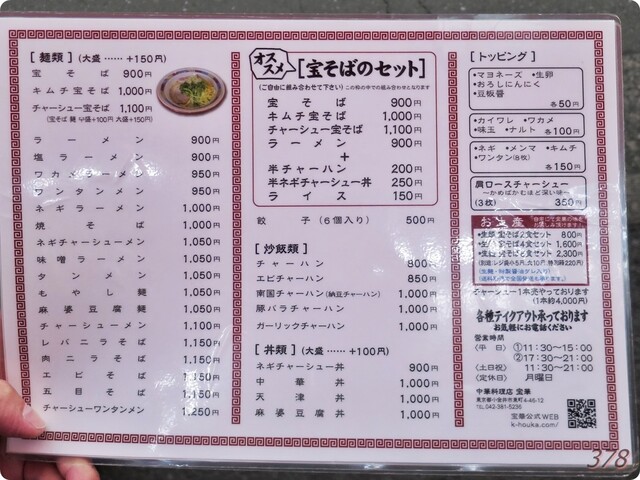 [ 麺類 ] (大盛 …… +150円)
宝そば 900円
キムチ宝そば 1,000円
チャーシュー宝そば 1,100円
ラーメン 900円
塩ラーメン 900円
ワカメラーメン 950円
ワンタンメン 950円
ネギラーメン 1,000円
焼そば 1,000円
ネギチャーシューメン 1,050円
味噌ラーメン 1,050円
タンメン 1,050円
もやし麺 1,050円
麻婆豆腐麺 1,050円
チャーシューメン 1,100円
レバニラそば 1,150円
肉ニラそば 1,150円
エビそば 1,150円
五目そば 1,150円
チャーシューワンタンメン 1,250円
オススメ
[宝そばのセット]
(ご自由に組み合わせて下さい)
宝そば 900円
キムチ宝そば 1,000円
チャーシュー宝そば 1,100円
ラーメン 900円
+
半チャーハン 200円
半ネギチャーシュー丼 250円
ライス 150円
餃子 (6個入り) 500円
[ 炒飯類 ]
チャーハン 800円
エビチャーハン 850円
南国チャーハン(納豆チャーハン) 1,000円
豚バラチャーハン 1,000円
ガーリックチャーハン 1,000円
[ 丼類 ] (大盛 …… +100円)
ネギチャーシュー丼 900円
中華丼 1,000円
天津丼 1,000円
麻婆豆腐丼 1,000円
[ トッピング ]
•マヨネーズ •生卵
•おろしにんにく
•豆板醤
各50円
•カイワレ •ワカメ
•味玉 •ナルト 各100円
•ネギ •メンマ •キムチ
•ワンタン(8枚)
各150円
肩ロースチャーシュー
〜かめばかむほど深い味〜
(3枚) 350円
宝そば2食セット 800円
宝そば4食セット 1,600円
セット 2,300円
チャーシュー1本売やっております
(1本約4,000円)
各種テイクアウト承っております
お気軽にお電話ください
営業時間
(平 日) ①11:30〜15:00
②17:30〜21:00
(土日祝) 11:30〜21:00
(定休日) 月曜日
中華料理店 宝華
東京都小金井市東町4-46-12
TEL.042-381-5236
宝華公式WEB
k-houka.com/
378